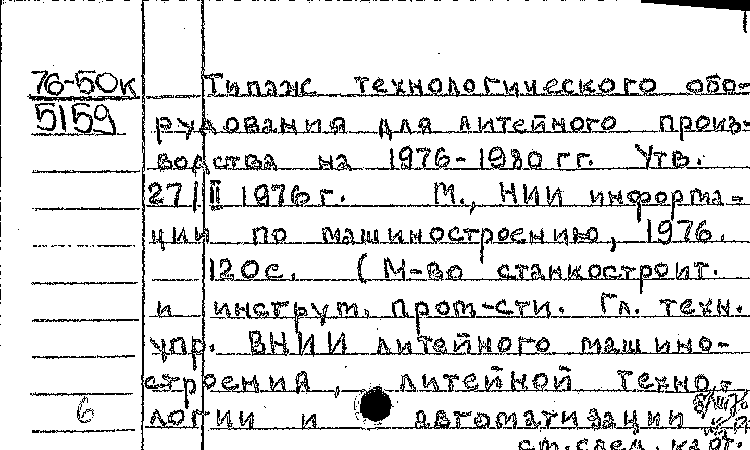 76-50к
5159
Типаж технологического обо-
рудования для литейного произ-
водства на 1976-1980 гг. Утв.
27/II 1976г. М., НИИ информа-
ции по машиностроению, 1976.
120с. (М-во станкостроит.
и инструм. пром-сти. Гл. техн.
упр. ВНИИ литейного машино-
строения, литейной техно-
логии и автоматизации
6
см. след. карт.